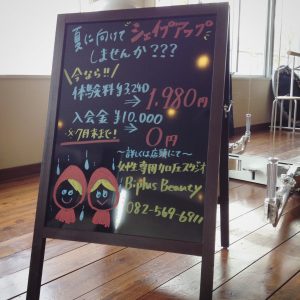 夏に向けて シェイプアップ
しませんか???
今なら!!
体験料 ¥3,240
→ 1,980円
入会金 ¥10,000
→ 0円
×7月末まで!
〜詳しくは店頭にて〜
女性専用カロリエスタジオ
B-plus Beauty
082-569-6911